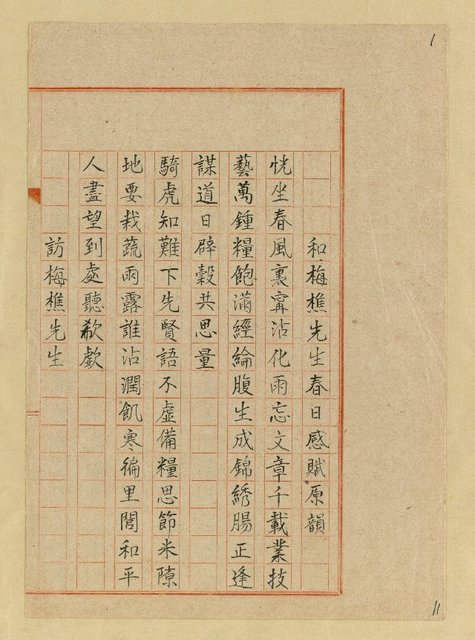 和梅樵先生春日感賦原韻
恍坐春風裏寗沾化雨忘文章千載業技
藝萬鍾糧飽滿經綸腹生成錦綉腸正逢
謀道日辟穀共思量
騎虎知難下先賢語不虛備糧思節米隙
地要栽蔬雨露誰沾潤飢寒徧里閭和平
人盡望到處聽欷歔
訪梅樵先生
1
11